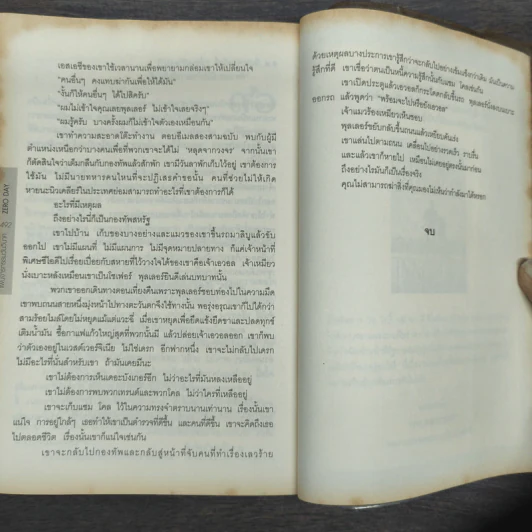 เอสเอชีของเขาใช้เวลานานเพื่อพยายามกล่อมเขาให้เปลี่ยนใจ
"คนอื่นๆ คงแทบฆ่ากันเพื่อให้ได้มัน"
"งั้นก็ให้คนอื่นๆ ได้ไปสิครับ"
"ผมไม่เข้าใจคุณเลยพุลเลอร์ ไม่เข้าใจเลยจริงๆ"
"ผมรู้ครับ บางครั้งผมก็ไม่เข้าใจตัวเองเหมือนกัน"
เขาทำความสะอาดโต๊ะทำงาน ตอบอีเมลสองสามฉบับ พบกับผู้มี
ตำแหน่งเหนือกว่าบางคนเพื่อที่พวกเขาจะได้ไม่ 'หลุดจากวงจร' จากนั้นเขา
ก็ตัดสินใจว่าเต็มกลืนกับกองทัพแล้วสักพัก เขามีวันลาพักเก็บไว้อยู่ เขาต้องการ
ใช้มัน ไม่มีนายทหารคนไหนที่จะปฏิเสธคำขอนั้น คนที่ช่วยไม่ให้เกิด
หายนะนิวเคลียร์ในประเทศย่อมสามารถทำอะไรที่เขาต้องการก็ได้
อะไรที่มีเหตุผล
ถึงอย่างไรนี่ก็เป็นกองทัพสหรัฐ
เขาไปบ้าน เก็บของบางอย่างและแมวของเขาขึ้นรถมาลิบูแล้วขับ
ออกไป เขาไม่มีแผนที่ ไม่มีแผนการ ไม่มีจุดหมายปลายทาง ก็แค่เจ้าหน้าที่
พิเศษซีไอดีไปเรื่อยเปื่อยกับสหายที่ไว้วางใจได้ของเขาคือเจ้าเอวอล เจ้าเหมียว
นั่งเบาะหลังเหมือนเขาเป็นโชเฟอร์ พุลเลอร์ยินดีเล่นบทบาทนั้น
พวกเขาออกเดินทางตอนเที่ยงคืนเพราะพุลเลอร์ชอบท่องไปในความมืด
เขาพบถนนสายหนึ่งมุ่งหน้าไปทางตะวันตกจึงใช้ทางนั้น พอรุ่งอรุณเขาก็ไปได้กว่า
สามร้อยไมล์โดยไม่หยุดแม้แต่แวะฉี่ เมื่อเขาหยุดเพื่อยืดแข้งยืดขาและปลดทุกข์
เติมน้ำมัน ซื้อกาแฟแก้วใหญ่สุดที่พวกนั้นมี แล้วปล่อยเจ้าเอวอลออก เขาก็พบ
ว่าตัวเองอยู่ในเวสต์เวอร์จิเนีย ไม่ใช่เดรก อีกฟากหนึ่ง เขาจะไม่กลับไปเดรก
ไม่มีอะไรที่นั่นสำหรับเขา ถ้ามันเคยมีนะ
เขาไม่ต้องการเห็นเดอะบังเกอร์อีก ไม่ว่าอะไรที่มันหลงเหลืออยู่
เขาไม่ต้องการพบพวกเทรนต์และพวกโคล ไม่ว่าใครที่เหลืออยู่
เขาจะเก็บแซม โคล ไว้ในความทรงจำตราบนานเท่านาน เรื่องนั้นเขา
แน่ใจ การอยู่ใกล้ๆ เธอทำให้เขาเป็นตำรวจที่ดีขึ้น และคนที่ดีขึ้น เขาจะคิดถึงเธอ
ไปตลอดชีวิต เรื่องนั้นเขาก็แน่ใจเช่นกัน
เขาจะกลับไปกองทัพและกลับสู่หน้าที่จับคนที่ทำเรื่องเลวร้าย
ZERO DAY
ด้วยเหตุผลบางประการเขารู้สึกว่าจะกลับไปอย่างเข้มแข็งกว่าเดิม
รู้สึกที่ดี เขาเชื่อว่าตนเป็นหนี้ความรู้สึกนั้นกับแซม โคลเช่นกัน
เขาเปิดประตูแล้วเอวอลก็กระโดดกลับขึ้นรถ
ออกรถ แล้วพูดว่า "พร้อมจะไปหรือยังเอวอล"
เจ้าแมวร้องเหมียวเห็นชอบ
พุลเลอร์ขับกลับขึ้นถนนแล้วเหยียบคันเร่ง
เขาแล่นไปตามถนน เคลื่อนไปอย่างรวดเร็ว ราบรื่น
และแล้วเขาก็หายไป เหมือนไม่เคยอยู่ตรงนั้นมาก่อน
ถึงอย่างไรมันก็เป็นเรื่องจริง
คุณไม่สามารถฆ่าสิ่งที่คุณมองไม่เห็นว่ากำลังมาได้หรอก
จบ